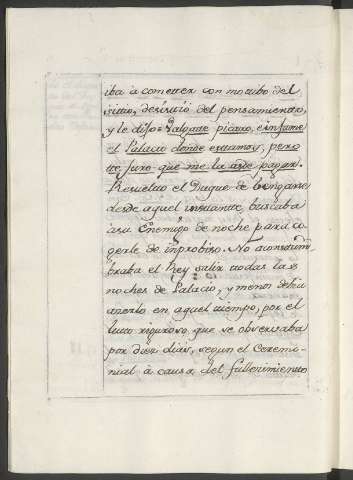 iba à cometter con mottibo del
sittio, desisttió del pensamientto,
y le dijo = Valgatte picaro, è infame
el Palacio donde esttamos, pero
tte juro que me la às de pagar.
Resueltto el Duque de bengarse
desde aquel insttantte, buscaba
à su Enemigo de noche para co
gerle de inprobiso. No acosttum
braba el Rey salir ttodas las
noches de Palacio, y menos debia
acerlo en aquel ttiempo, por el
lutto riguroso, que se observaba
por diez dias, segun el Ceremo-
nial à causa del fallecimientto